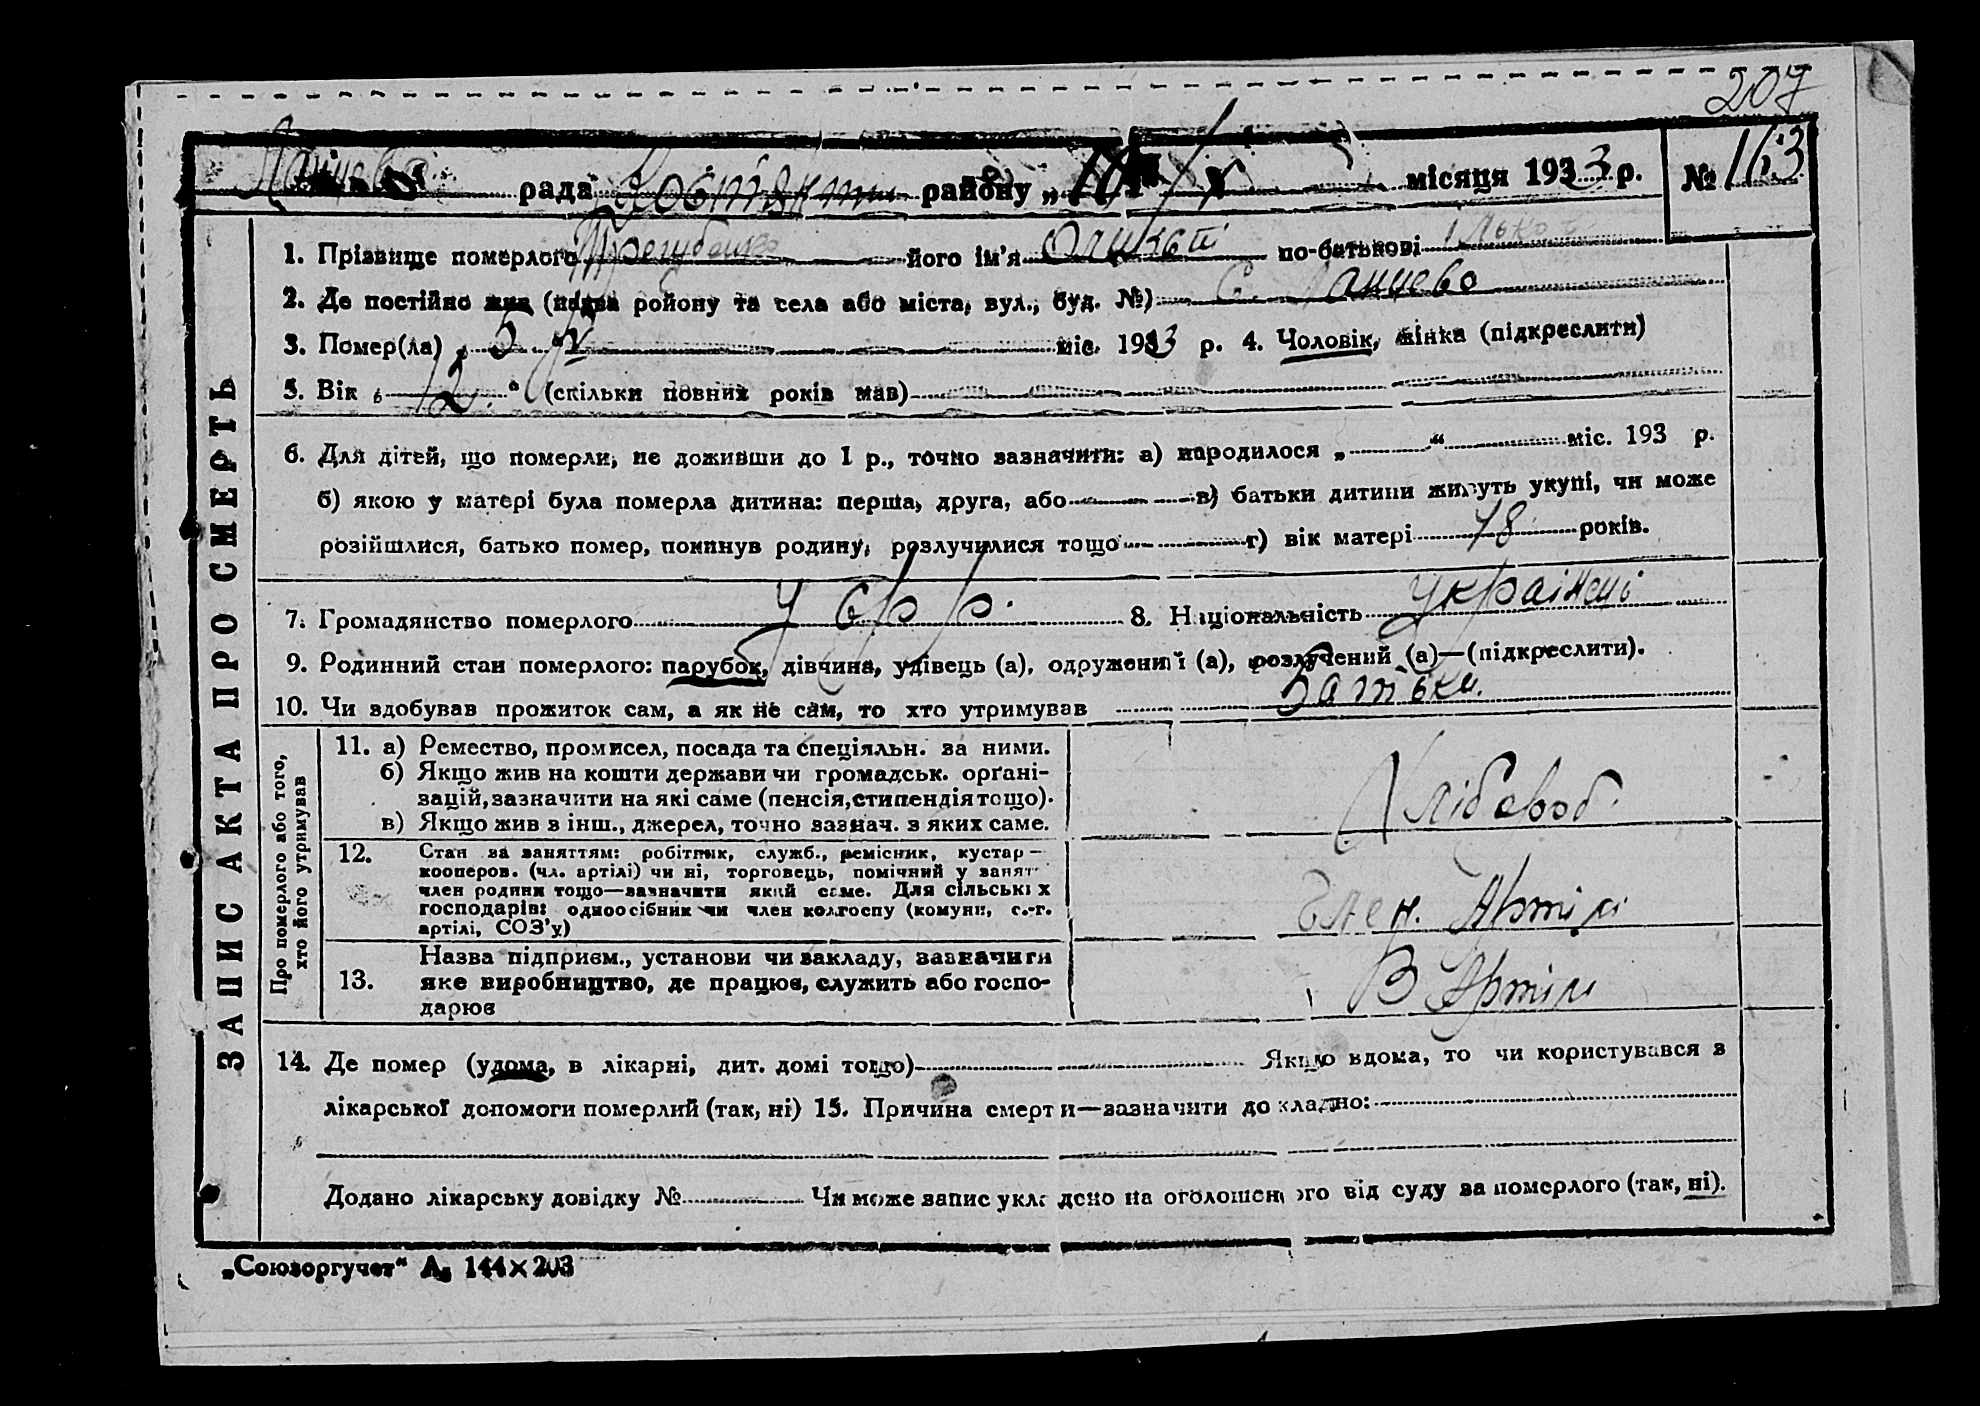 207
рада району „ місяця 1933 р. № 163
1. Прізвище померлого Трегубенко його ім'я Олексій по-батькові
2. Де постійно жив (назва ройону та села або міста, вул., буд. №) С. Ланцево
3. Помер(ла) „ 5 " V міс. 1933 р. 4. Чоловік, жінка (підкреслити)
5. Вік „ 12 " (скільки повних років мав)
6. Для дітей, що померли, не доживши до 1 р., точно зазначити: а) народилося „ " міс. 193 р.
б) якою у матері була померла дитина: перша, друга, або в) батьки дитини живуть укупі, чи може
розійшлися, батько помер, покинув родину, розлучилися тощо г) вік матері 48 років.
7. Громадянство померлого УСРР. 8. Національність Українець
9. Родинний стан померлого: парубок, дівчина, удівець (а), одружений (а), розлучений (а)—(підкреслити).
10. Чи здобував прожиток сам, а як не сам, то хто утримував Батьки.
ЗАПИС АКТА ПРО СМЕРТЬ
Про померлого або того, хто його утримував
11. а) Ремество, промисел, посада та спеціяльн. за ними.
б) Якщо жив на кошти держави чи громадськ. орґані-
зацій, зазначити на які саме (пенсія, стипендія тощо).
в) Якщо жив з інш., джерел, точно зазнач. з яких саме.
Хлібороб.
12. Стан за заняттям: робітник, служб., ремісник, кустар—
кооперов. (чл. артілі) чи ні, торговець, помічний у занят
член родини тощо—зазначити який саме. Для сільських
господарів: одноосібник чи член колгоспу (комуни, с.-г.
артілі, СОЗ'у)
Член. Артілі
13. Назва підприєм., установи чи закладу, зазначити
яке виробництво, де працює, служить або госпо-
дарює
В Артілі
14. Де помер (удома, в лікарні, дит. домі тощо) Якщо вдома, то чи користувався з
лікарської допомоги померлий (так, ні) 15. Причина смерти—зазначити докладно:
Додано лікарську довідку № Чи може запис укладено на оголошеного від суду за померлого (так, ні).
„Союзоргучет" А5 144×203